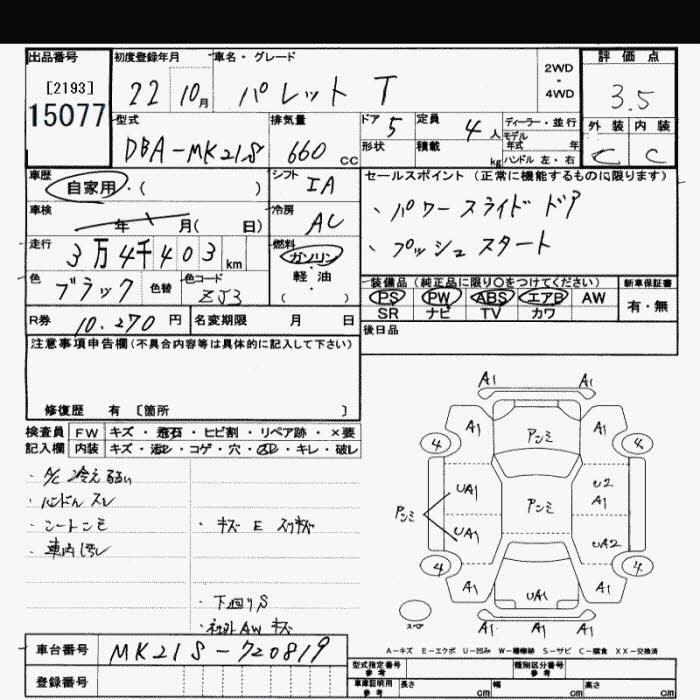 出品番号
[2193]
15077
初度登録年月
22 10月
車名・グレード
パレット T
2WD
・
4WD
評価点
3.5
外装 内装
C C
型式
DBA-MK21S
排気量
660 CC
ドア 5
形状
定員 4 人
積載 kg
ディーラー・並行
モデル
年式 年
ハンドル 左・右
車歴
自家用・( )
シフト
IA
車検
年 月( 日)
冷房
AC
走行
3万4千403 km
燃料
ガソリン
軽油
( )
色
ブラック
色替
色コード
ZJ3
R券 10.270 円
名変期限 月 日
セールスポイント(正常に機能するものに限ります)
、パワースライドドア
、プッシュスタート
装備品(純正品に限り○をつけてください)
PS PW ABS エアB AW
SR ナビ TV カワ
新車保証書
有・無
後日品
注意事項申告欄(不具合内容等は具体的に記入して下さい)
修復歴 有 〔箇所 〕
検査員
記入欄
FW キズ・飛石・ヒビ割・リペア跡・×要
内装 キズ・汚レ・コゲ・穴・・キレ・破レ
・A/C冷え弱い
・ハンドルスレ
・シートシミ
・車内汚レ
・キズ E スリキズ
・下回りS
・社外AWキズ
A1 A1
A1 アンミ A1
4 4
UA1 アンミ U2
A1
アンミ
UA1 UA2
4 4
A1 UA1 A1
A1 A1 A1
スペア
A-キズ E-エクボ U-凹み W-補修跡 S-サビ C-腐食 XX-交換済
車台番号 MK21S-720819
登録番号
型式指定番号
参考
類別区分番号
参考
車庫証明用
参考
長さ cm 幅 cm 高さ cm